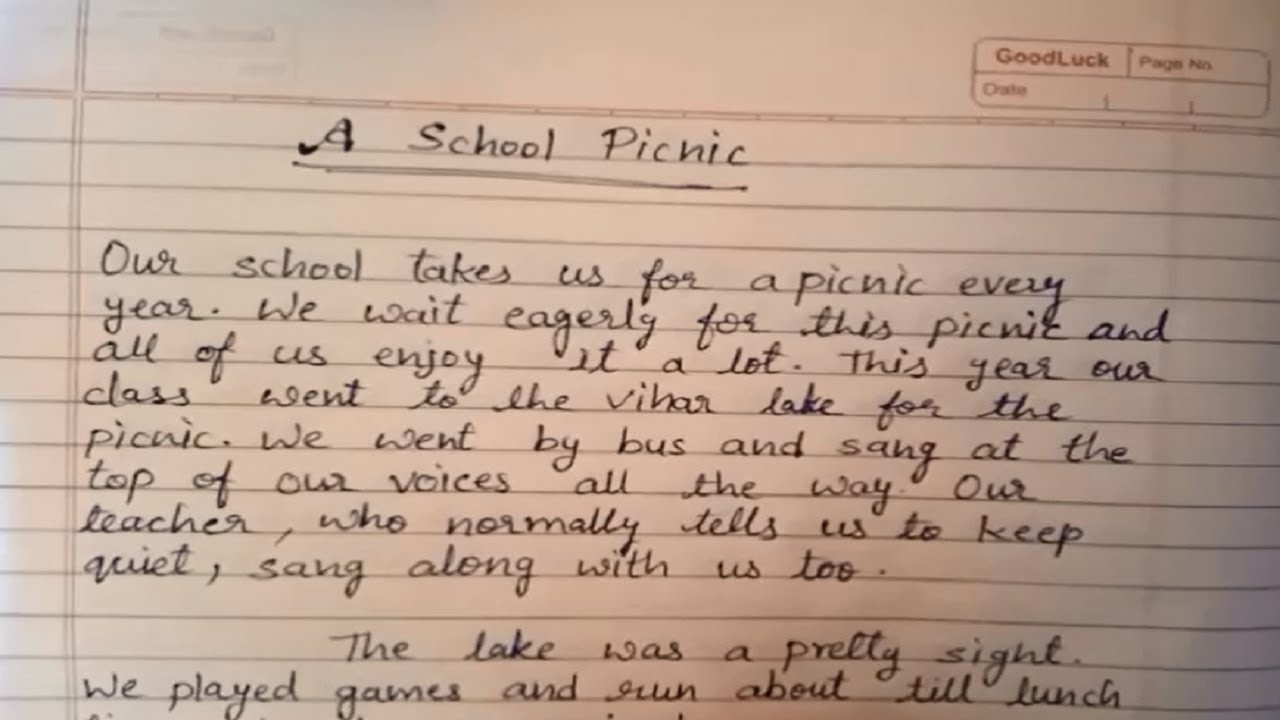 GoodLuck
Page No.
Date
A School Picnic
Our school takes us for a picnic every
year. We wait eagerly for this picnic and
all of us enjoy it a lot. This year our
class went to the vihar lake for the
picnic. We went by bus and sang at the
top of our voices all the way. Our
teacher, who normally tells us to keep
quiet, sang along with us too.
The lake was a pretty sight.
We played games and run about till lunch